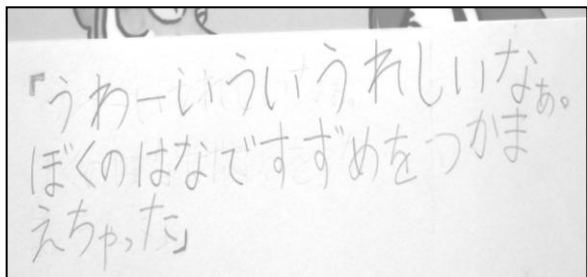 「うわーいういういうれしいなぁ。
ぼくのはなですずめをつかま
えちゃった」